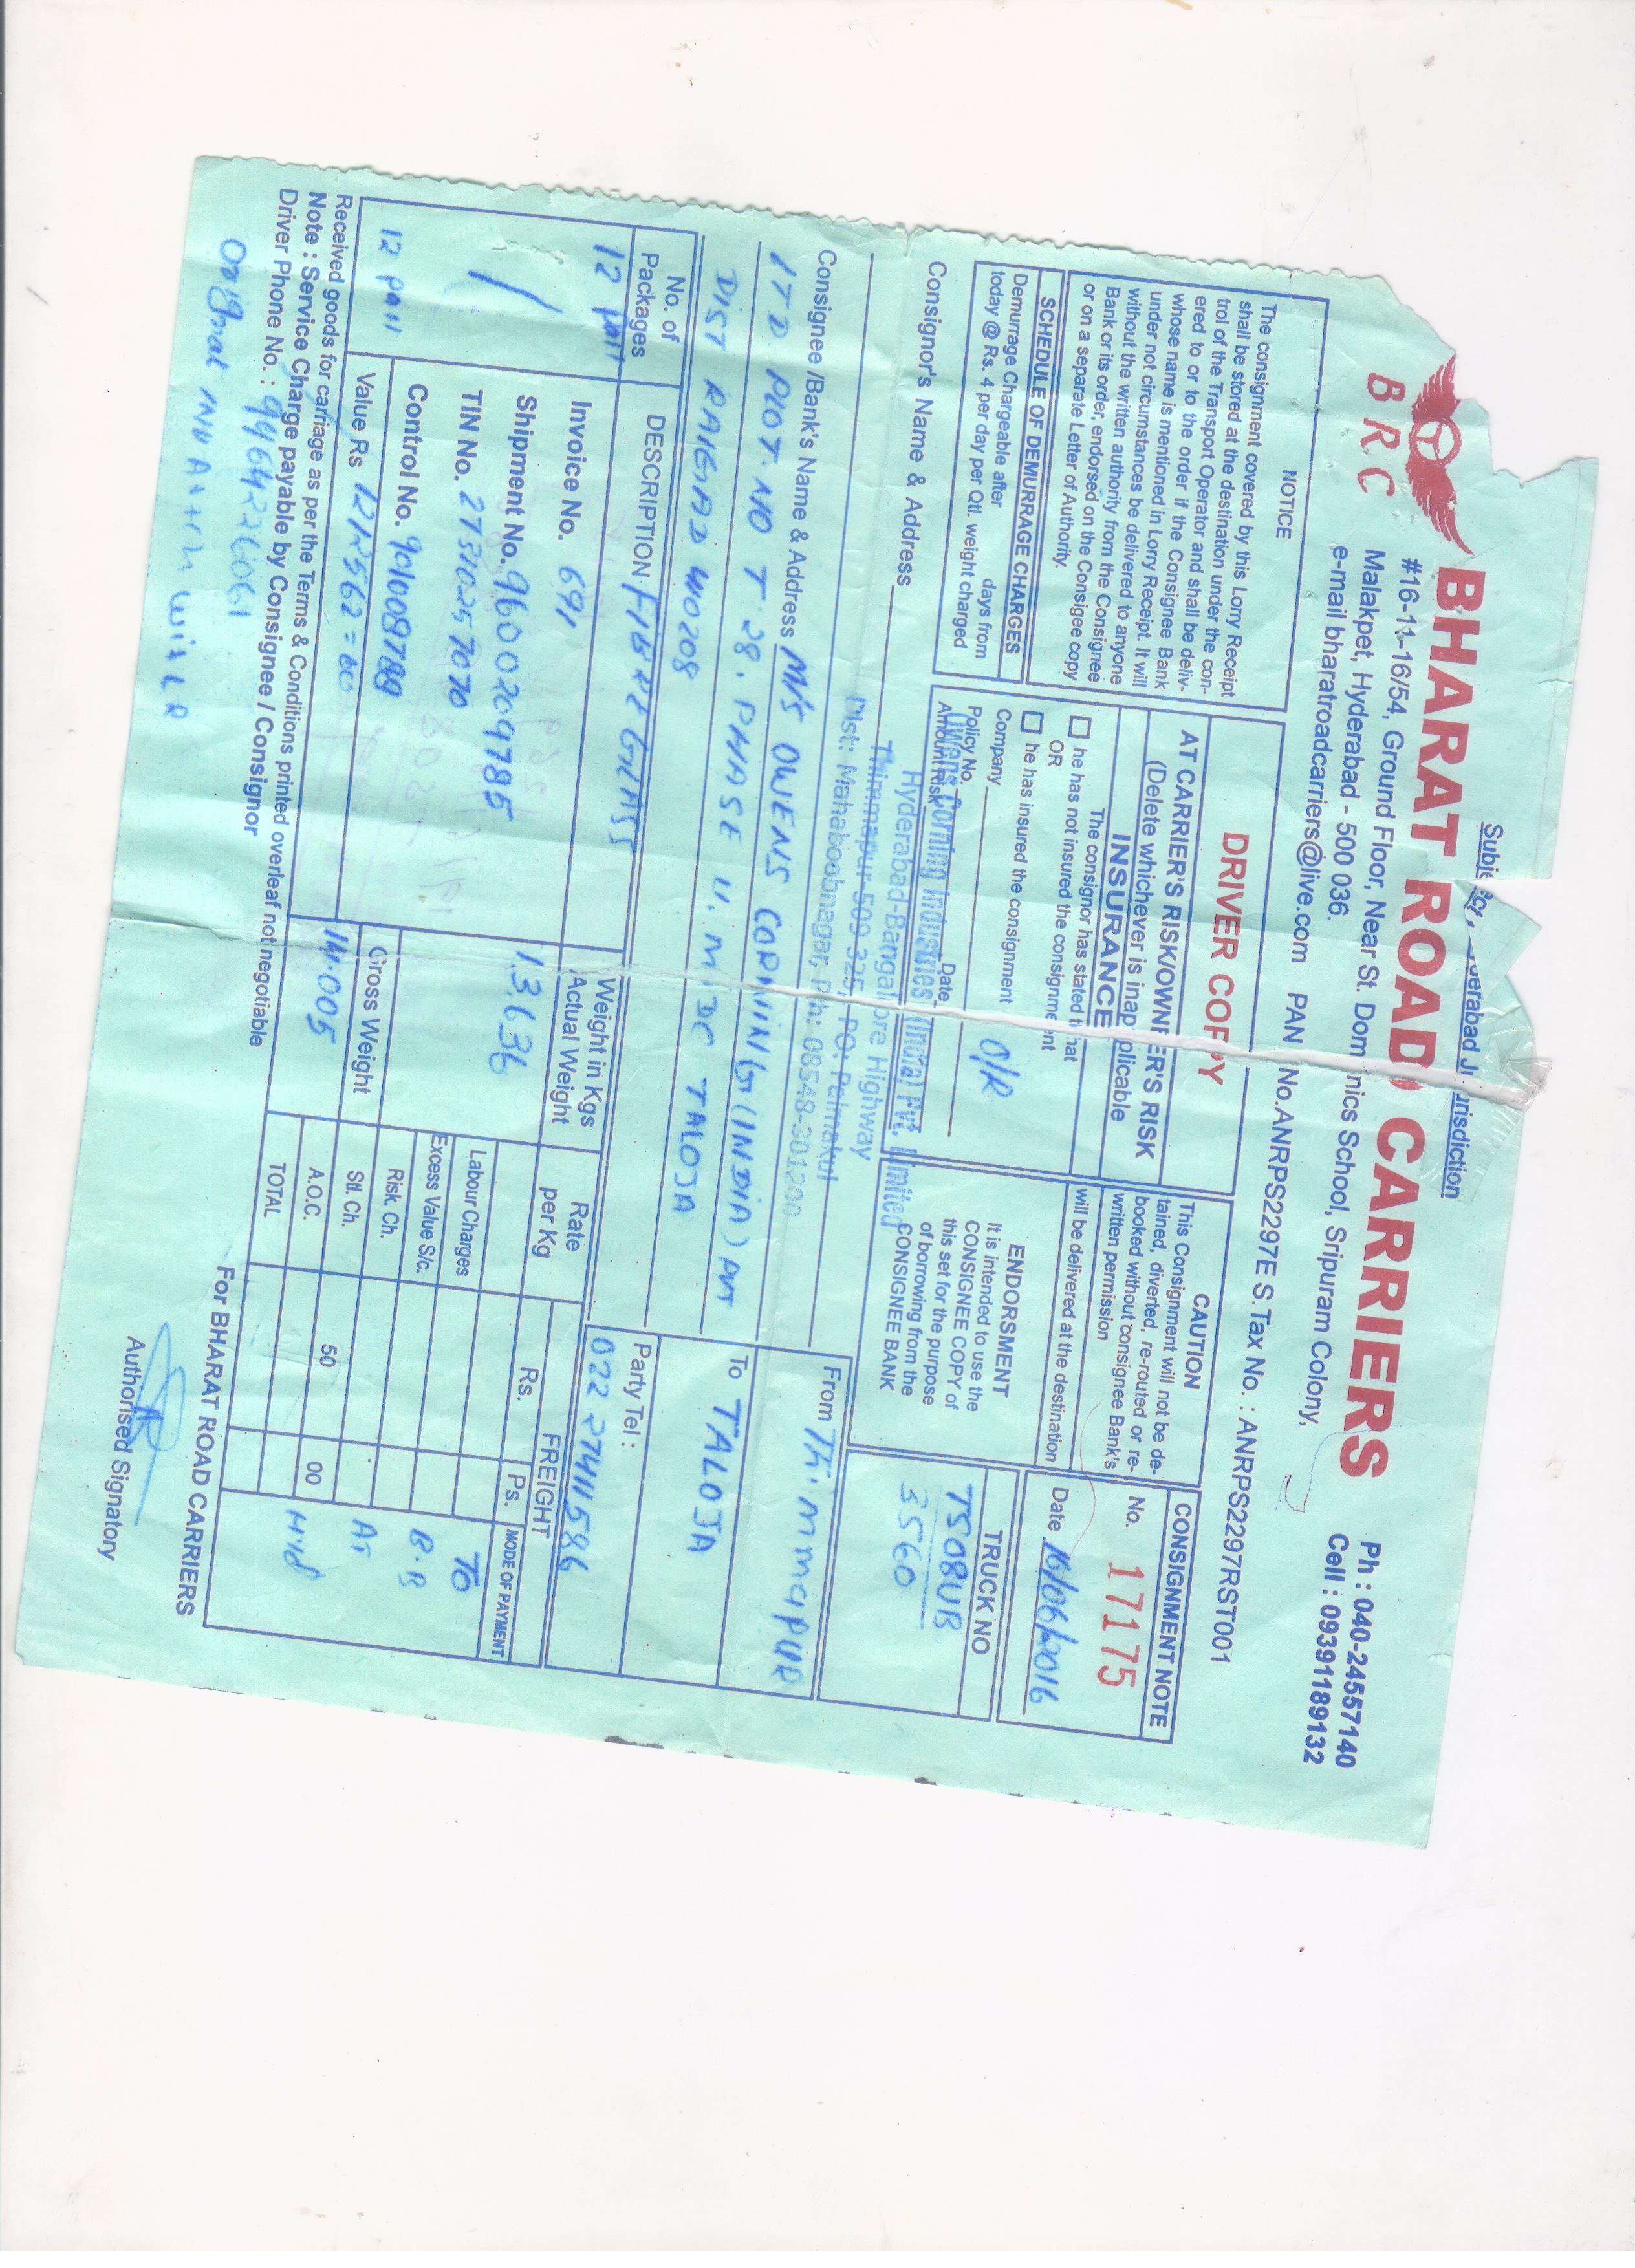 Subject Hyderabad Jurisdiction
BHARAT ROAD CARRIERS
BRC
#16-11-16/54, Ground Floor, Near St. Dominics School, Sripuram Colony,
Malakpet, Hyderabad - 500 036.
e-mail bharatroadcarriers@live.com PAN No.ANRPS2297E S.Tax No. : ANRPS2297RST001
Ph : 040-24557140
Cell : 09391189132
NOTICE
The consignment covered by this Lorry Receipt
shall be stored at the destination under the con-
trol of the Transport Operator and shall be deliv-
ered to or to the order if the Consignee Bank
whose name is mentioned in Lorry Receipt. It will
under not circumstances be delivered to anyone
without the written authority from the Consignee
Bank or its order, endorsed on the Consignee copy
or on a separate Letter of Authority.
SCHEDULE OF DEMURRAGE CHARGES
Demurrage Chargeable after days from
today @ Rs. 4 per day per Qtl. weight charged
DRIVER COPY
AT CARRIER'S RISK/OWNER'S RISK
(Delete whichever is inapplicable
INSURANCE
The consignor has stated that
he has not insured the consignment
OR
he has insured the consignment
Company
Policy No. Date
Amount Risk
O/R
CAUTION
This Consignment will not be de-
tained, diverted, re-routed or re-
booked without consignee Bank's
written permission
will be delivered at the destination
ENDORSMENT
It is intended to use the
CONSIGNEE COPY of
this set for the purpose
of borrowing from the
CONSIGNEE BANK
CONSIGNMENT NOTE
No. 17175
Date 16/06/2016
TRUCK NO
TS08UB
3560
Consignor's Name & Address
Owens Corning Industries (India) Pvt. Limited
Hyderabad-Bangalore Highway
Thimmapur-509 325, PO: Palmakul
Dist: Mahaboobnagar, Ph: 08548-301200
Consignee /Bank's Name & Address M/S OWENS CORNING (INDIA) PVT
LTD PLOT.NO T-28. PHASE U. MIDC TALOJA
DIST RAIGAD 410208
From Thimmapur
To TALOJA
Party Tel :
022 27411586
No. of Packages
DESCRIPTION FIBRE GLASS
Weight in Kgs
Actual Weight
Rate per Kg
FREIGHT
Rs. Ps.
MODE OF PAYMENT
12 pall
Invoice No. 691
Shipment No. 9600209785
TIN No. 27310257070
Control No. 901009789
Value Rs 1212562=00
12 pall
13.636
Gross Weight
14.005
Labour Charges
Excess Value S/c.
Risk. Ch.
Stl. Ch.
A.O.C. 50 00
TOTAL
TO
B.B
AT
Hyd
Received goods for carriage as per the Terms & Conditions printed overleaf not negotiable
Note : Service Charge payable by Consignee / Consignor
Driver Phone No. : 9964226061
Original INV Attch with LR
For BHARAT ROAD CARRIERS
Authorised Signatory